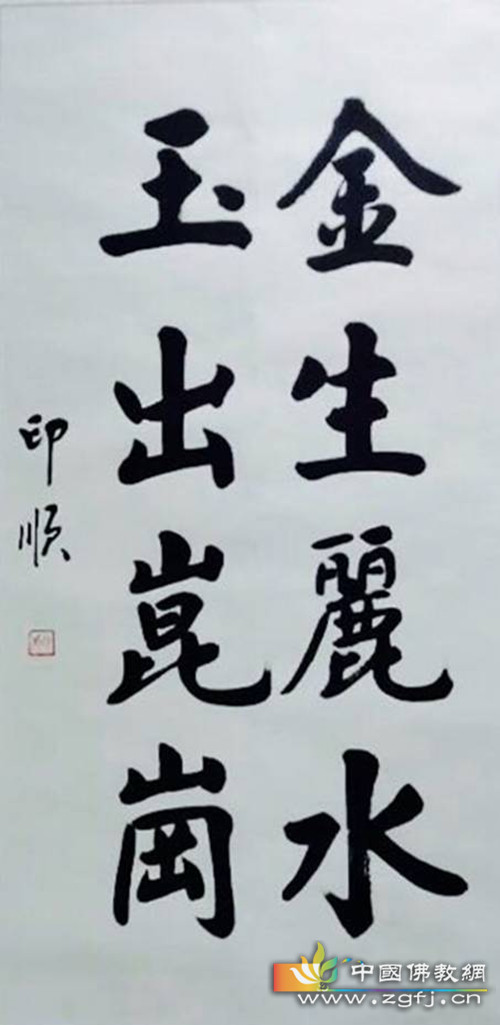 金生麗水
玉出崑崗
印順
中國佛教網
www.zgfj.cn